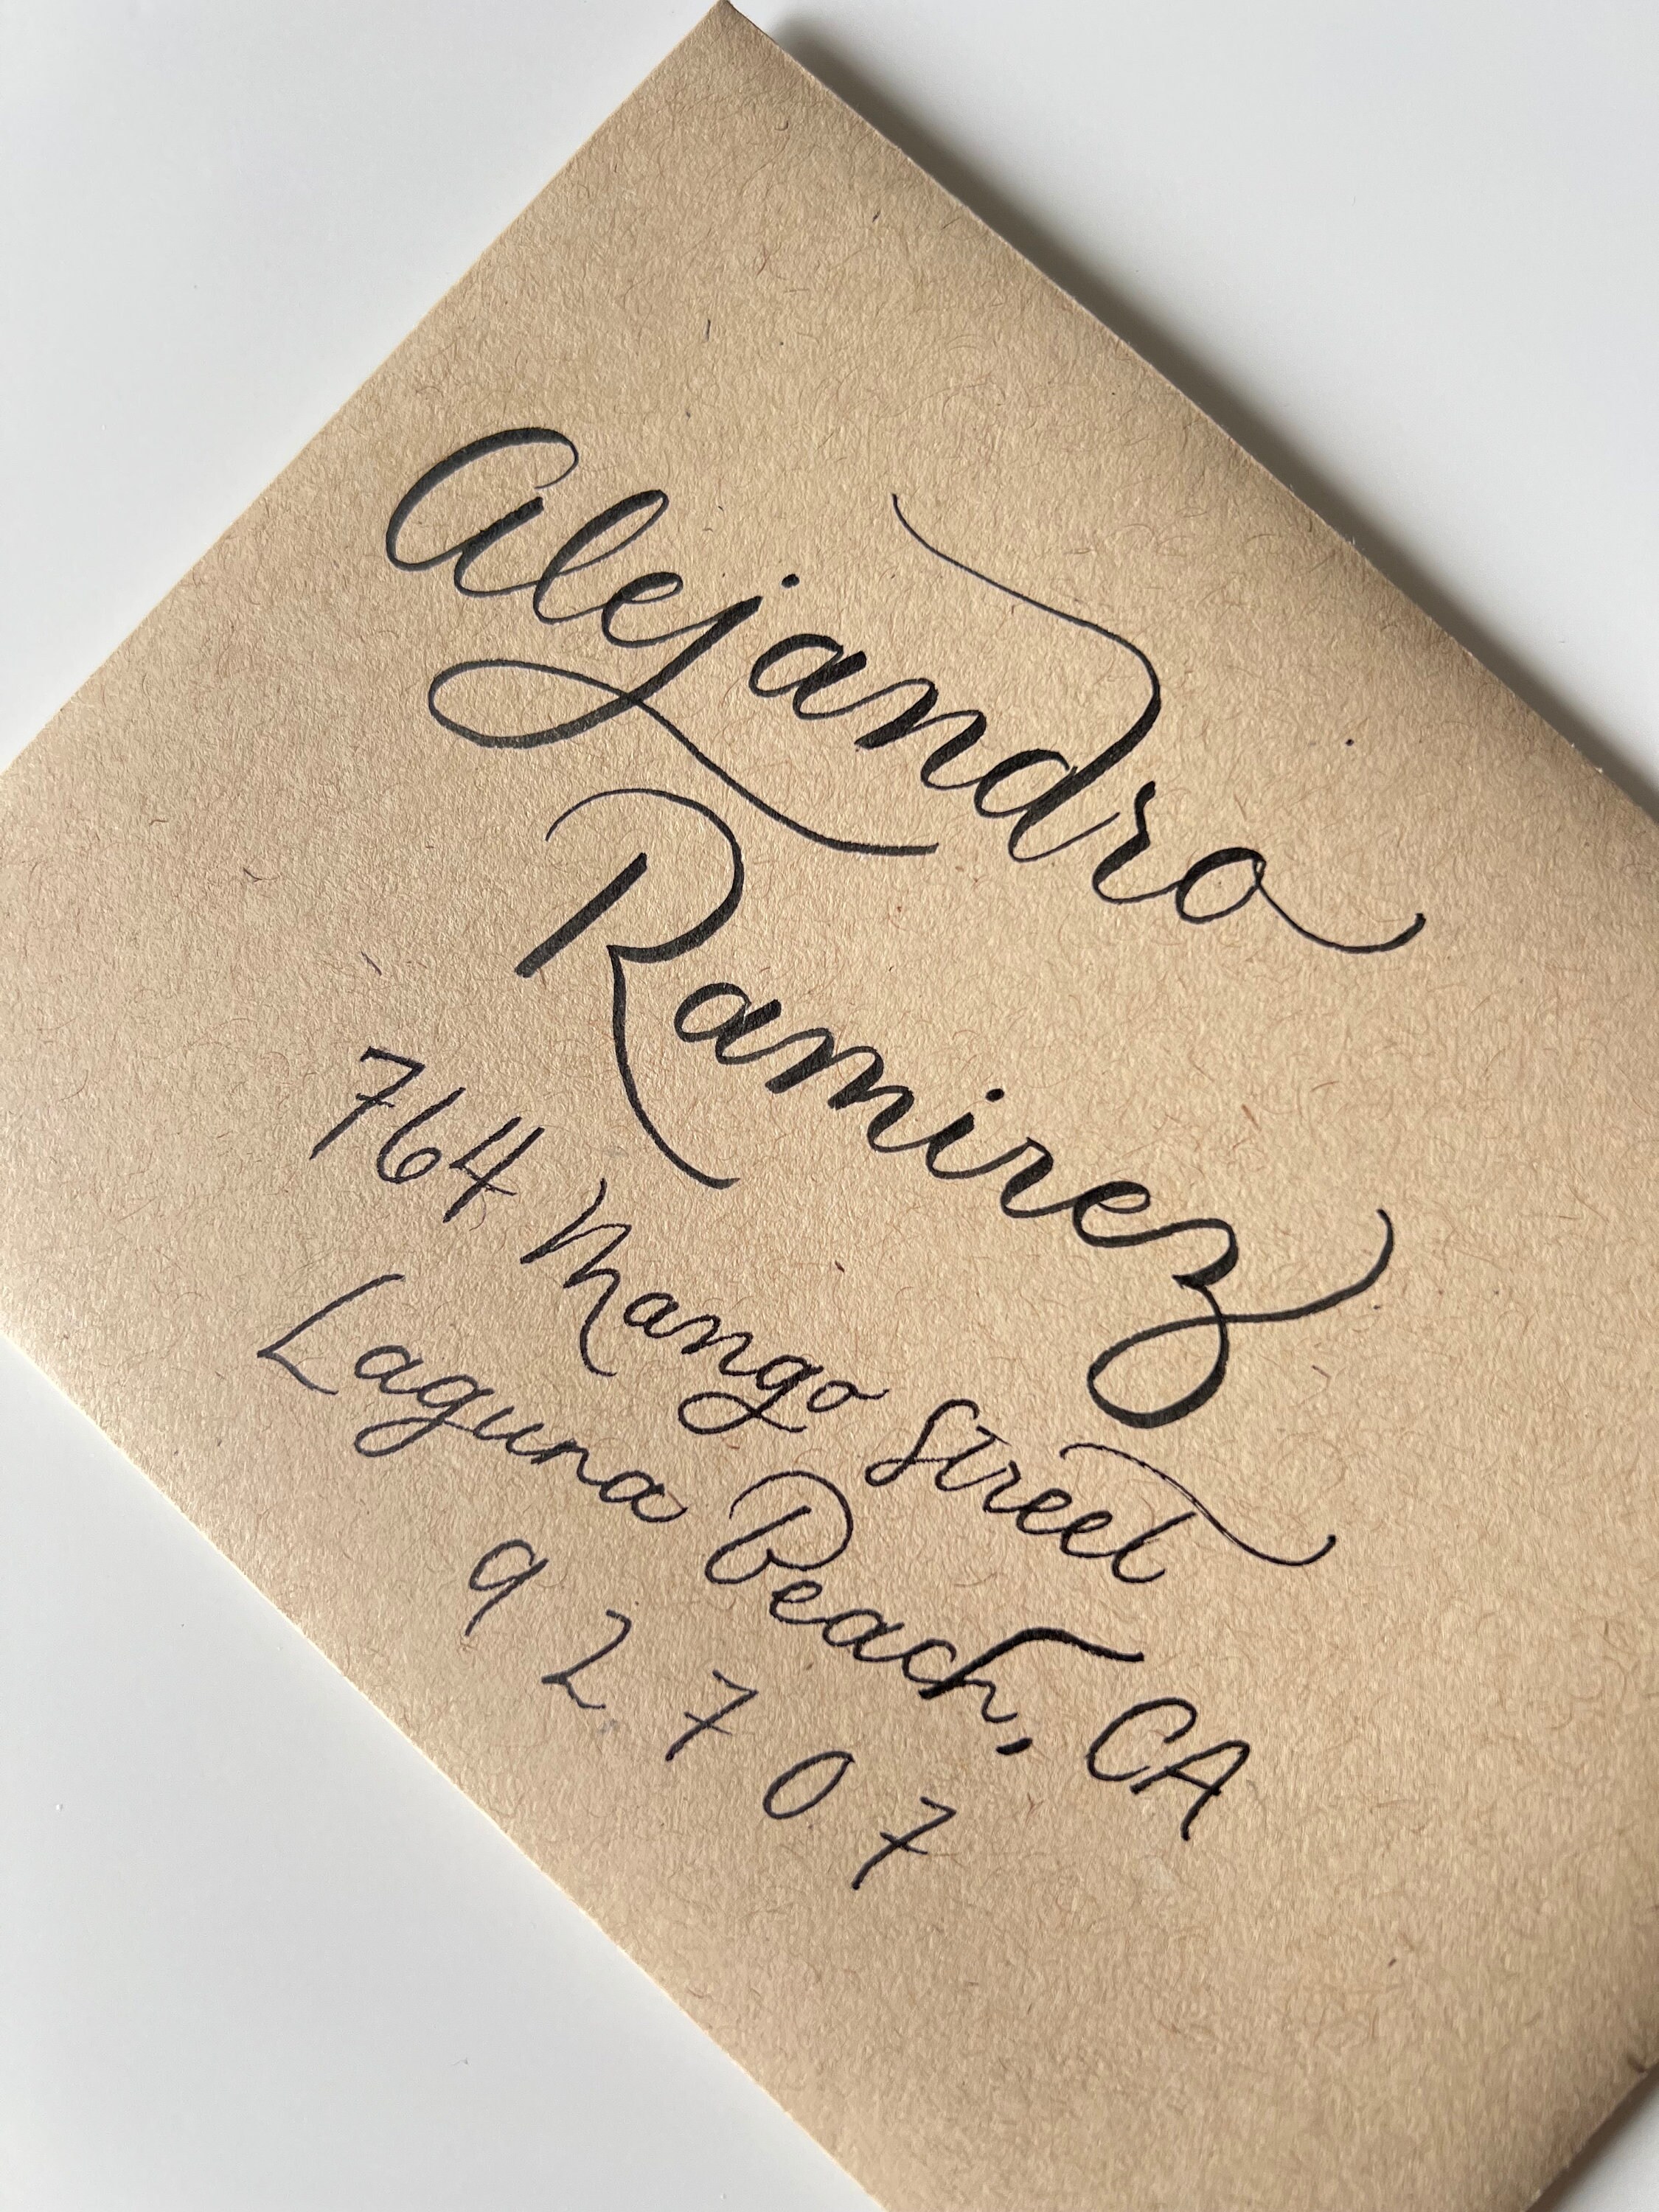 Alejandro
Ramirez
764 Mango Street
Laguna Beach, CA
92707